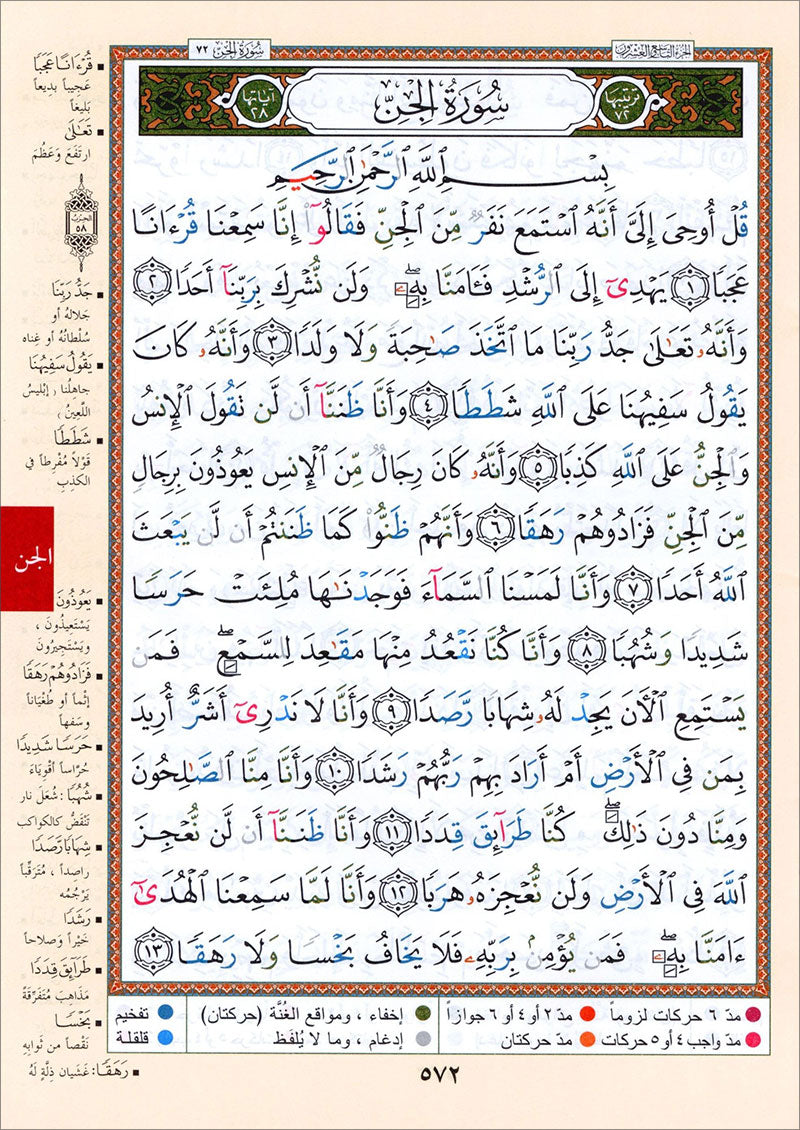 الجزء التاسع والعشرون
سورة الجن ٧٢
ترتيبها ٧٢
سُورَةُ الجِنِّ
آياتها ٢٨
بِسْمِ ٱللَّهِ ٱلرَّحْمَٰنِ ٱلرَّحِيمِ
قُلْ أُوحِىَ إِلَىَّ أَنَّهُ ٱسْتَمَعَ نَفَرٌ مِّنَ ٱلْجِنِّ فَقَالُوٓا۟ إِنَّا سَمِعْنَا قُرْءَانًا
عَجَبًا ١ يَهْدِىٓ إِلَى ٱلرُّشْدِ فَـَٔامَنَّا بِهِۦ ۖ وَلَن نُّشْرِكَ بِرَبِّنَآ أَحَدًا ٢
وَأَنَّهُۥ تَعَٰلَىٰ جَدُّ رَبِّنَا مَا ٱتَّخَذَ صَٰحِبَةً وَلَا وَلَدًا ٣ وَأَنَّهُۥ كَانَ
يَقُولُ سَفِيهُنَا عَلَى ٱللَّهِ شَطَطًا ٤ وَأَنَّا ظَنَنَّآ أَن لَّن تَقُولَ ٱلْإِنسُ
وَٱلْجِنُّ عَلَى ٱللَّهِ كَذِبًا ٥ وَأَنَّهُۥ كَانَ رِجَالٌ مِّنَ ٱلْإِنسِ يَعُوذُونَ بِرِجَالٍ
مِّنَ ٱلْجِنِّ فَزَادُوهُمْ رَهَقًا ٦ وَأَنَّهُمْ ظَنُّوا۟ كَمَا ظَنَنتُمْ أَن لَّن يَبْعَثَ
ٱللَّهُ أَحَدًا ٧ وَأَنَّا لَمَسْنَا ٱلسَّمَآءَ فَوَجَدْنَٰهَا مُلِئَتْ حَرَسًا
شَدِيدًا وَشُهُبًا ٨ وَأَنَّا كُنَّا نَقْعُدُ مِنْهَا مَقَٰعِدَ لِلسَّمْعِ ۖ فَمَن
يَسْتَمِعِ ٱلْآنَ يَجِدْ لَهُۥ شِهَابًا رَّصَدًا ٩ وَأَنَّا لَا نَدْرِىٓ أَشَرٌّ أُرِيدَ
بِمَن فِى ٱلْأَرْضِ أَمْ أَرَادَ بِهِمْ رَبُّهُمْ رَشَدًا ١٠ وَأَنَّا مِنَّا ٱلصَّٰلِحُونَ
وَمِنَّا دُونَ ذَٰلِكَ ۖ كُنَّا طَرَآئِقَ قِدَدًا ١١ وَأَنَّا ظَنَنَّآ أَن لَّن نُّعْجِزَ
ٱللَّهَ فِى ٱلْأَرْضِ وَلَن نُّعْجِزَهُۥ هَرَبًا ١٢ وَأَنَّا لَمَّا سَمِعْنَا ٱلْهُدَىٰٓ
ءَامَنَّا بِهِۦ ۖ فَمَن يُؤْمِنۢ بِرَبِّهِۦ فَلَا يَخَافُ بَخْسًا وَلَا رَهَقًا ١٣
▪ قُرْءَانًا عَجَبًا
عَجِيباً بديعاً
بَليغاً
▪ تَعَٰلَىٰ
ارتَفَعَ وَعَظُمَ
الحزب
٥٨
▪ جَدُّ رَبِّنَا
جَلالُهُ أو
سُلْطانُهُ أو غِناه
▪ يَقُولُ سَفِيهُنَا
جاهلُنا (إبليسُ
اللّعينُ)
▪ شَطَطًا
قَوْلاً مُفْرِطاً في
الكَذِبِ
الجن
▪ يَعُوذُونَ
يَسْتَعِيذُونَ ،
ويَسْتَجِيرُونَ
▪ فَزَادُوهُمْ رَهَقًا
إثْماً أو طُغْيَاناً
وسَفهاً
▪ حَرَسًا شَدِيدًا
حُرَّاساً أقْوِيَاءَ
▪ شُهُبًا : شُعَلَ نارٍ
تَنْقَضُّ كالكواكبِ
▪ شِهَابًا رَّصَدًا
راصداً ، مُتَرَقِّباً
يَرْجُمُه
▪ رَشَدًا
خَيْراً وَصَلاحاً
▪ طَرَآئِقَ قِدَدًا
مَذَاهِبَ مُتَفَرِّقَةً
▪ بَخْسًا
نَقْصاً من ثَوابِهِ
▪ رَهَقًا : غَشَيانَ ذِلَّةٍ لَهُ
مدّ ٦ حركات لزوماً ● مدّ ٢ أو ٤ أو ٦ جوازاً
إخفاء ، ومواقع الغُنَّة (حركتان)
تفخيم
مدّ واجب ٤ أو ٥ حركات ● مدّ حركتان
إدغام ، وما لا يُلفَظ
قلقلة
٥٧٢